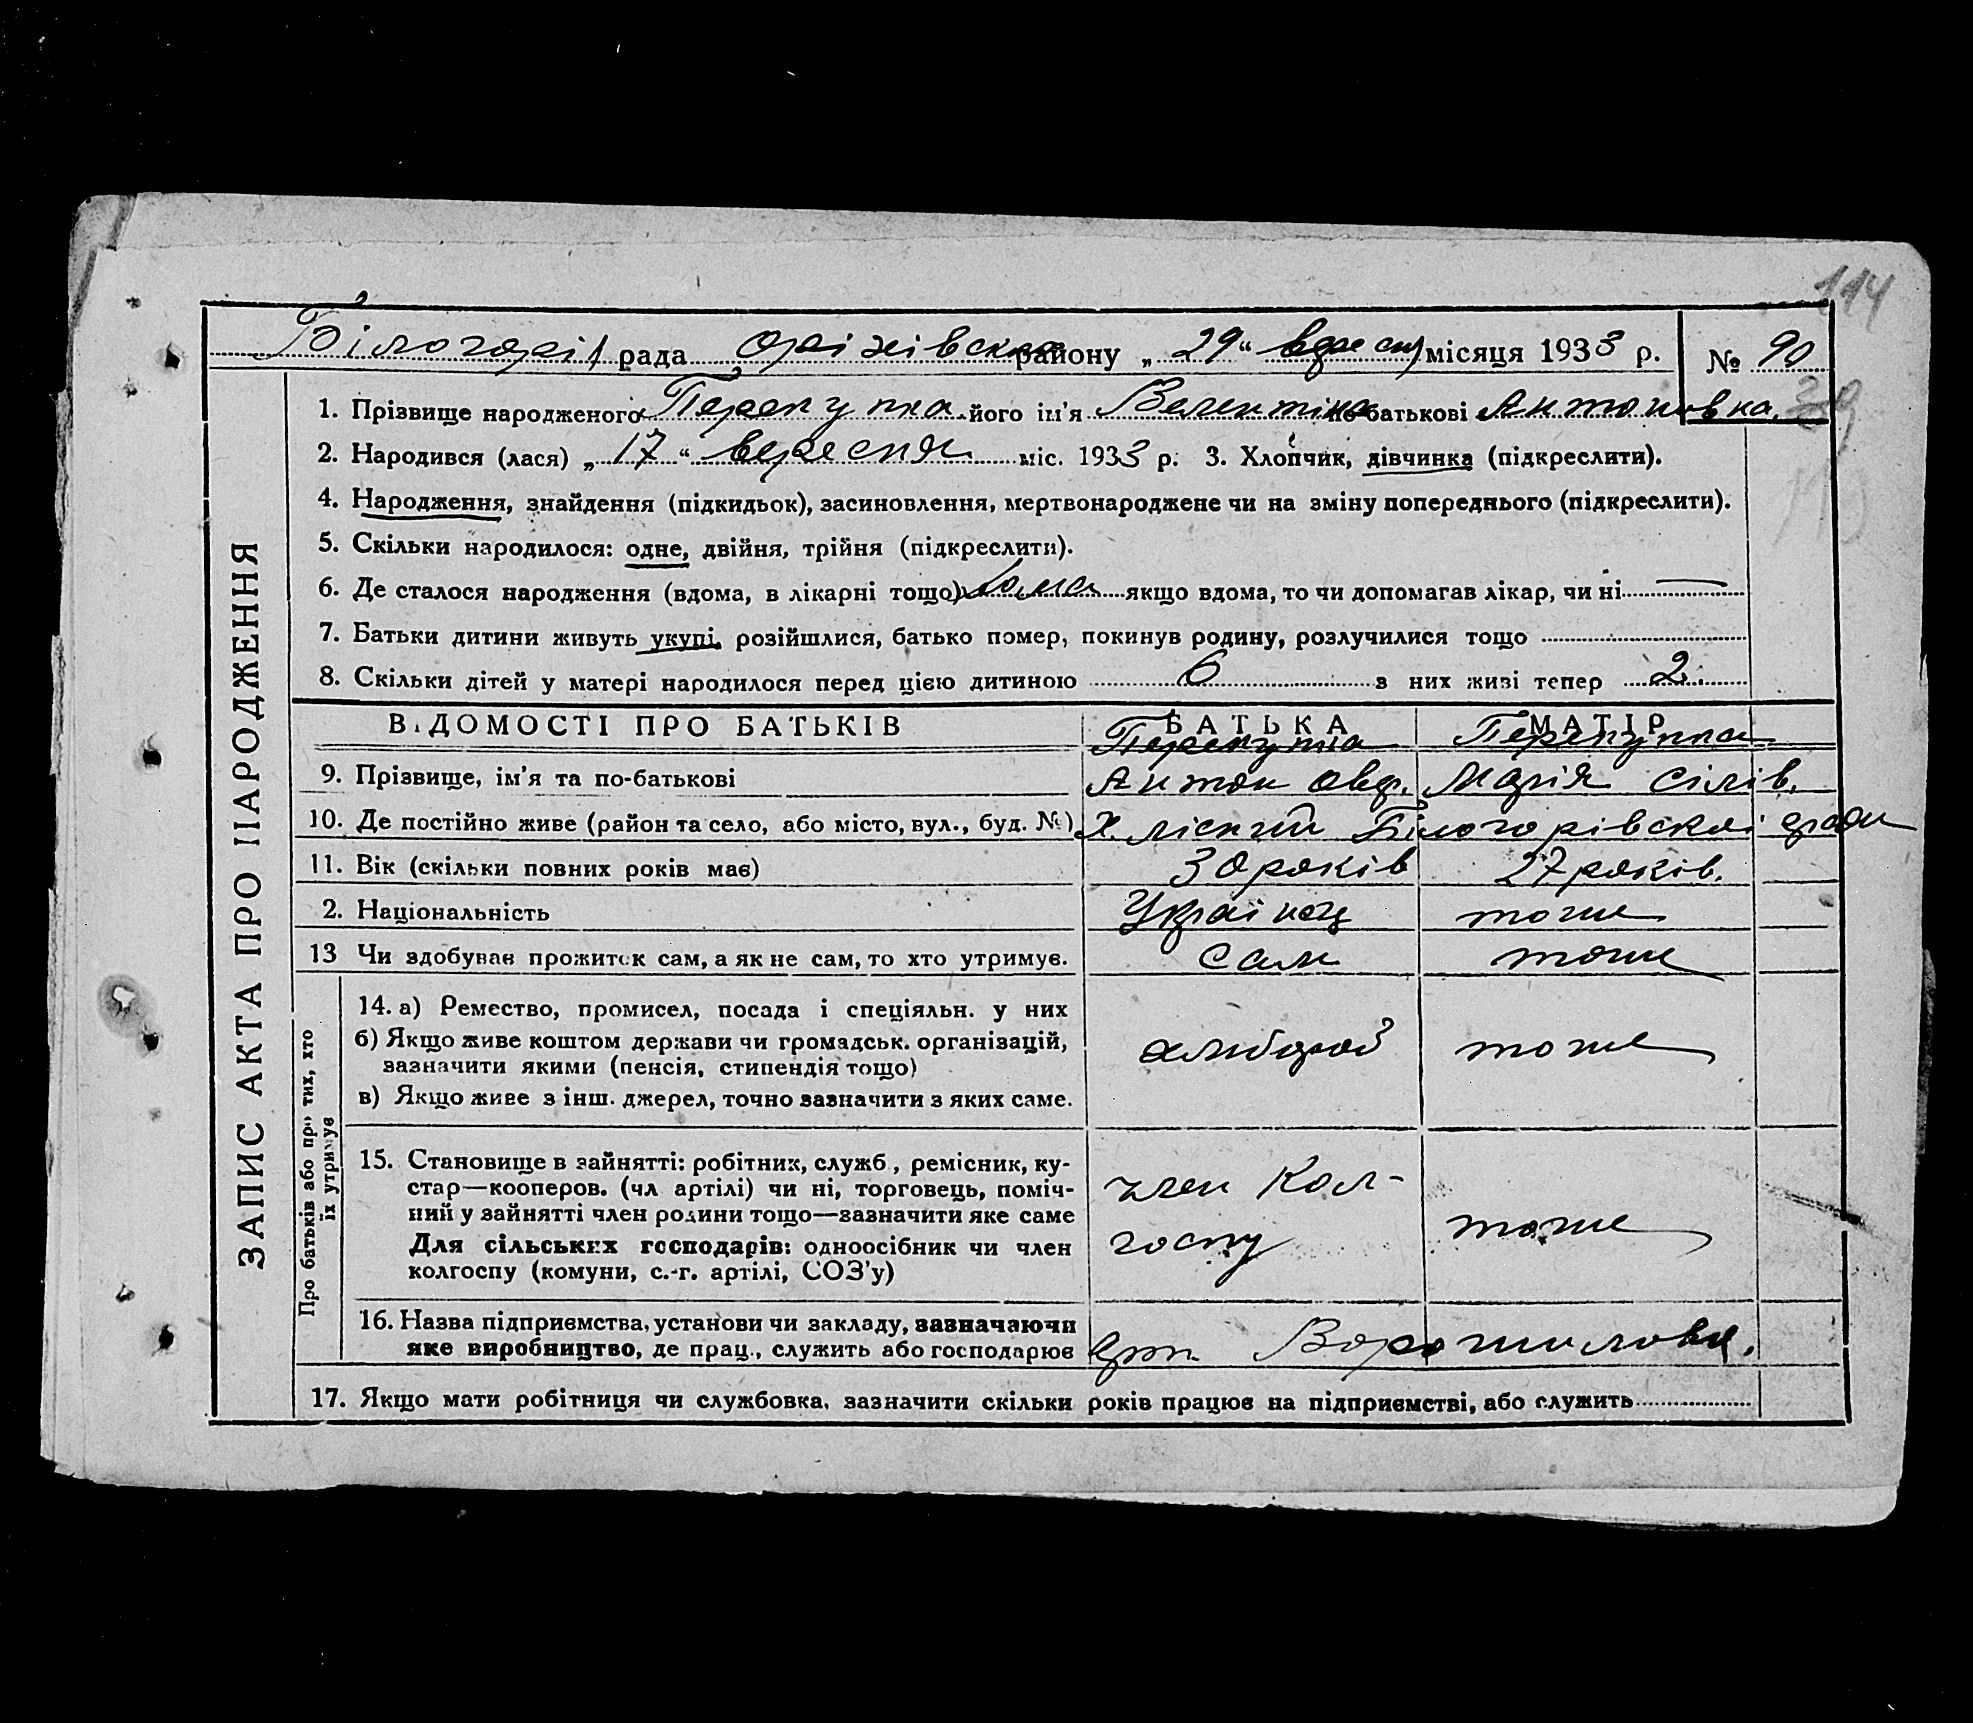 114
Білогорі рада Оріхівська району „29“ вересн місяця 1933 р. № 90
1. Прізвище народженого Перепутка його ім'я Валентіна по батькові Антонівка.
2. Народився (лася) „17“ вересня міс. 1933 р. 3. Хлопчик, дівчинка (підкреслити).
4. Народження, знайдення (підкидьок), засиновлення, мертвонароджене чи на зміну попереднього (підкреслити).
5. Скільки народилося: одне, двійня, трійня (підкреслити).
6. Де сталося народження (вдома, в лікарні тощо) дома якщо вдома, то чи допомагав лікар, чи ні —
7. Батьки дитини живуть укупі, розійшлися, батько помер, покинув родину, розлучилися тощо
8. Скільки дітей у матері народилося перед цією дитиною 6 з них живі тепер 2.
ЗАПИС АКТА ПРО НАРОДЖЕННЯ
ВІДОМОСТІ ПРО БАТЬКІВ БАТЬКА МАТІР
9. Прізвище, ім'я та по-батькові Антон Овер. Марія Сілів.
10. Де постійно живе (район та село, або місто, вул., буд. №) Х. Ліский Білогорівскої ради
11. Вік (скільки повних років має) 30 років 27 років.
2. Національність Українец тоже
13 Чи здобував прожиток сам, а як не сам, то хто утримує. Сам тоже
Про батьків або про тих, хто
їх утримує
14. а) Ремество, промисел, посада і спеціяльн. у них
б) Якщо живе коштом держави чи громадськ. організацій,
зазначити якими (пенсія, стипендія тощо) хлибороб тоже
в) Якщо живе з інш. джерел, точно зазначити з яких саме.
15. Становище в зайнятті: робітник, служб., ремісник, ку-
стар—кооперов. (чл артілі) чи ні, торговець, поміч- член кол-
ний у зайнятті член родини тощо—зазначити яке саме
Для сільських господарів: одноосібник чи член госпу тоже
колгоспу (комуни, с.-г. артілі, СОЗ'у)
16. Назва підприємства, установи чи закладу, зазначаючи
яке виробництво, де прац., служить або господарює арт. Ворошилова.
17. Якщо мати робітниця чи службовка, зазначити скільки років працює на підприємстві, або служить